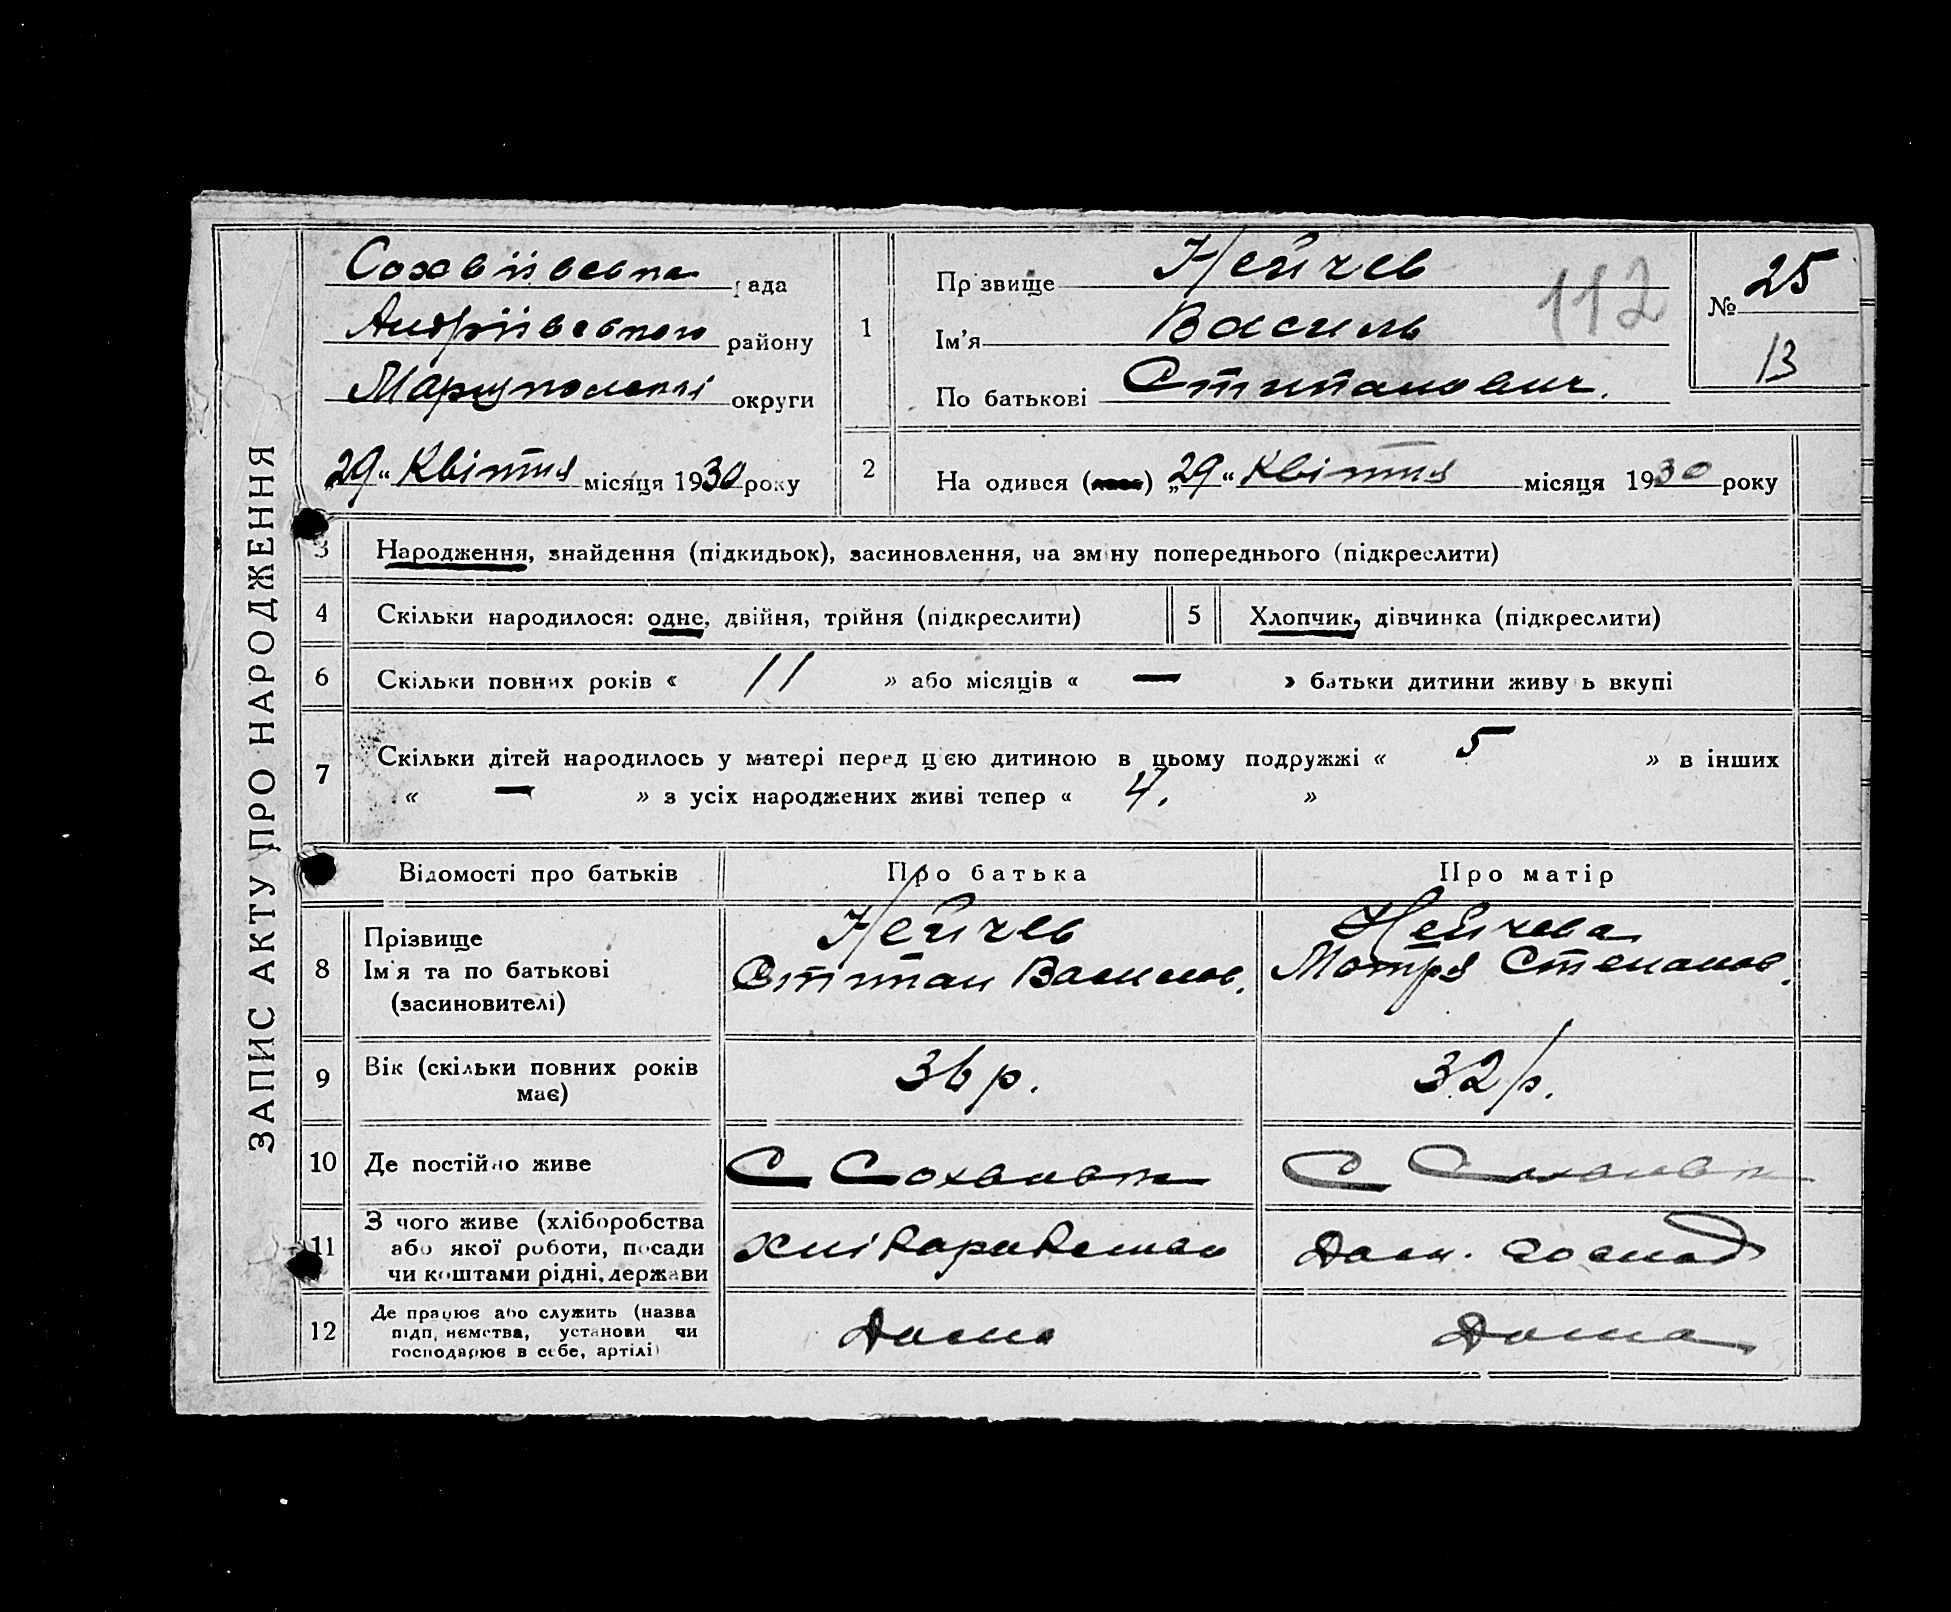 ЗАПИС АКТУ ПРО НАРОДЖЕННЯ
рада
Андріївського району
Маріупольскі округи
„29“ Квітня місяця 1930 року
1
Прізвище Нейчев
Ім'я Василь
По батькові Стипанович.
112
№ 25
13
2
Народився („29“ Квітня місяця 1930 року
3 Народження, знайдення (підкидьок), засиновлення, на зміну попереднього (підкреслити)
4 Скільки народилося: одне, двійня, трійня (підкреслити) 5 Хлопчик, дівчинка (підкреслити)
6 Скільки повних років « 11 » або місяців « — » батьки дитини живуть вкупі
7 Скільки дітей народилось у матері перед цією дитиною в цьому подружжі « 5 » в інших
« — » з усіх народжених живі тепер « 4. »
Відомості про батьків Про батька Про матір
8 Прізвище
Ім'я та по батькові
(засиновителі)
Нейчев
Стипан Василов.
Нейчева
Мотря Степанов.
9 Вік (скільки повних років
має)
36 р. 32 р.
10 Де постійно живе С С
11 З чого живе (хліборобства
або якої роботи, посади
чи коштами рідні, держави
Дом. господ
12 Де працює або служить (назва
підприємства, установи чи
господарює в себе, артілі)
Дома Дома